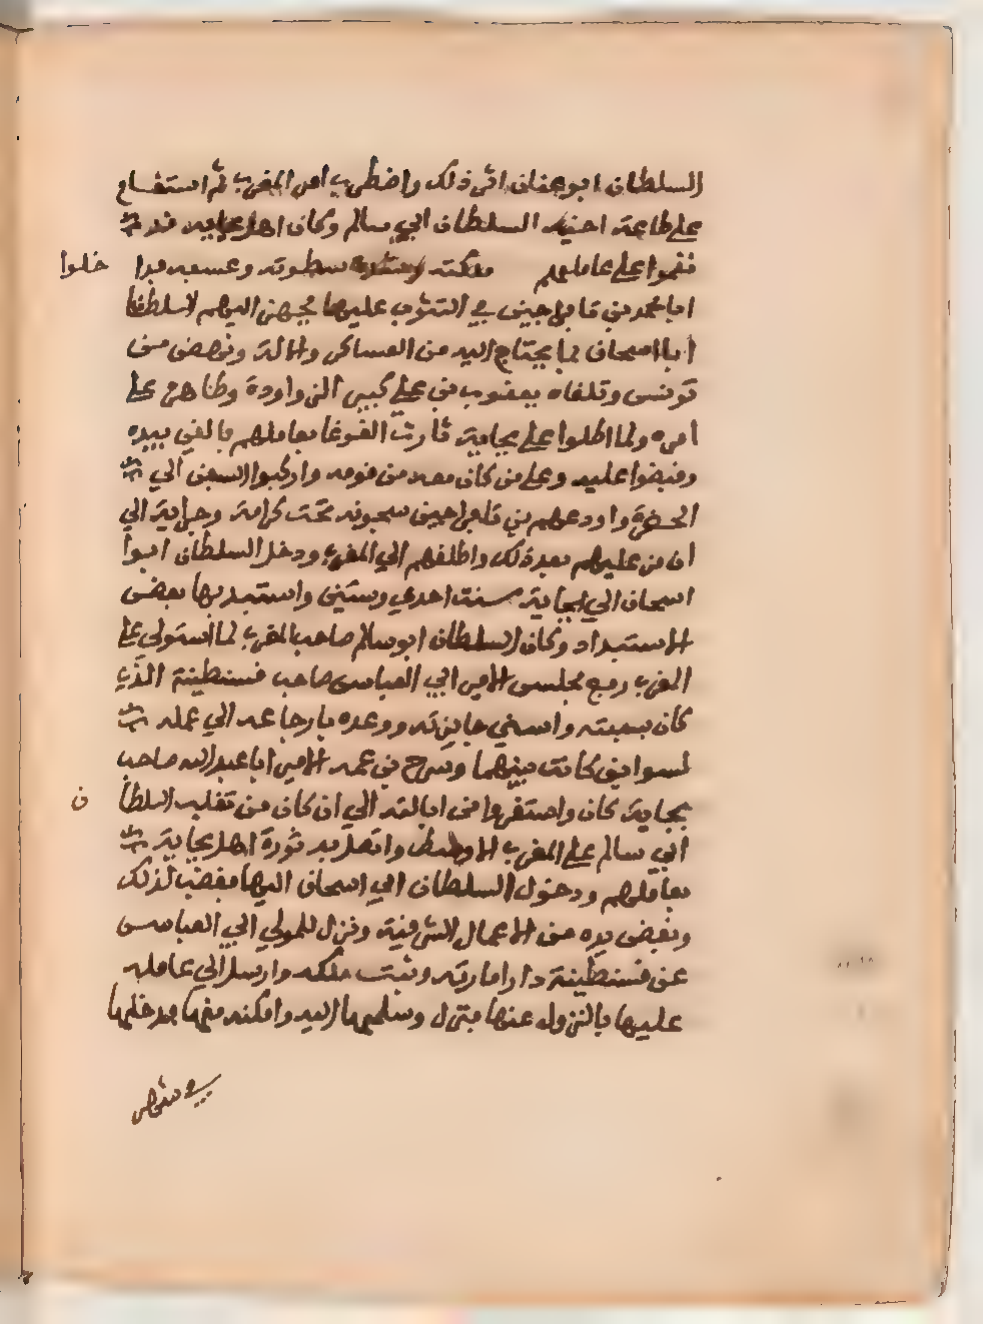 السلطان ابو عنان اثر ذلك واضطرب امر المغرب ثم استقام
على طاعة اخيه السلطان ابي سالم وكان اهل بجاية قد
نقموا على عاملهم ملكته سطوته وعسفه فدا خلوا
ابا محمد بن تافراجين في التثوب عليها فجهز اليهم السلطان
ابا اسحاق بما يحتاج اليه من العساكر والالة ونهض من
تونس وتلقاه يعقوب بن علي كبير الزواودة وظاهره على
امره ولما اطلوا على بجاية ثارت الغوغا بعاملهم فالقى بيده
وقبضوا عليه وعلى من كان معه من قومه واركبوا السفن الي
الحضرة واودعهم بن تافراجين سجونه تحت كرامة وجراية الي
ان من عليهم بعد ذلك واطلقهم الي المغرب ودخل السلطان ابوا
اسحاق الي بجاية سنت احدي وستين واستبد بها بعض
الاستبداد وكان السلطان ابو سالم صاحب المغرب لما استولي على
المغرب رفع مجلس الامير ابي العباس صاحب قسنطينة الذي
كان بسبتة واسني جايزته ووعده بارجاعه الي عمله
لسوابق كانت بينهما وسرح بن عمه الامير ابا عبد الله صاحب
بجاية كان واستقروا من ايالته الي ان كان من تغلب السلطا ن
ابي سالم على المغرب الاوسط واتصل به ثورة اهل بجاية
بعاملهم ودخول السلطان ابي اسحاق اليها فغضب لذلك
ونفض يده من الاعمال الشرقية ونزل للمولي ابي العباس
عن قسنطينة دار امارته ومثبت ملكه وارسل الي عامله
عليها بالنزول عنها فنزل وسلمها اليه وامكنه منها فدخلها